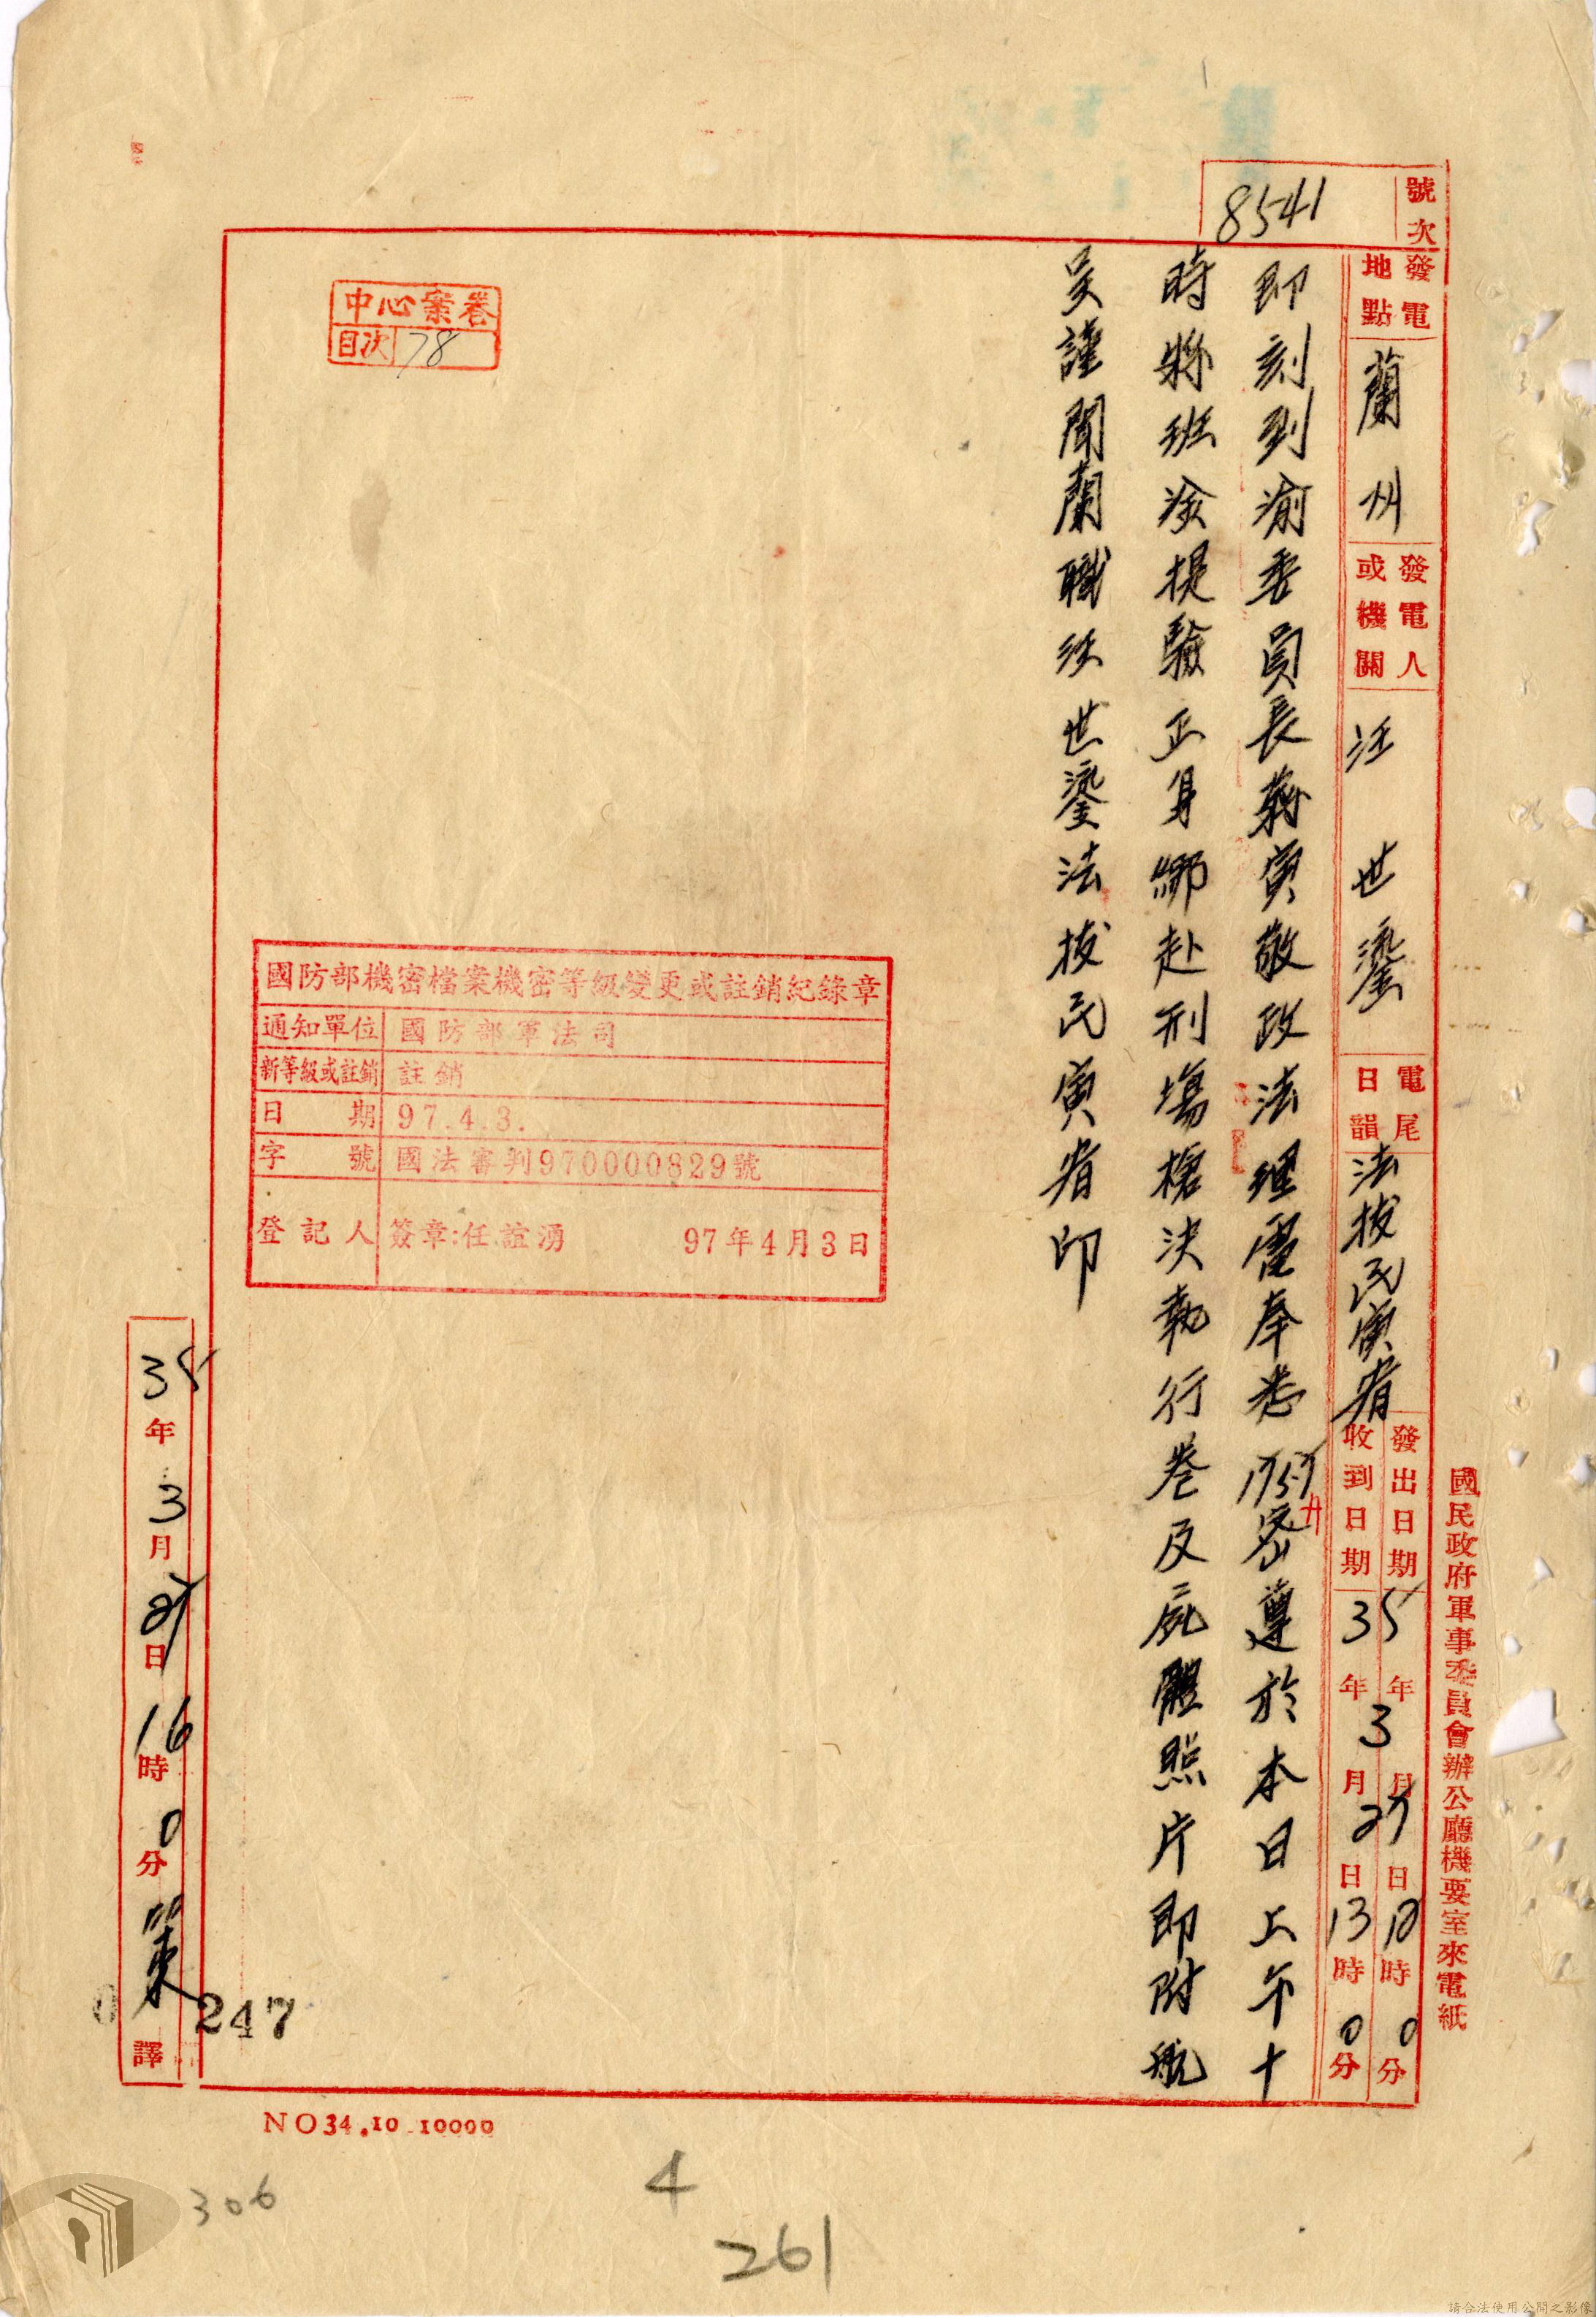 國民政府軍事委員會辦公廳機要室來電紙
號次 8541
發電地點 蘭州
發電人或機關 汪世鎏
電尾日韻 法拔民寅宥
發出日期 35年3月27日10時0分
收到日期 35年3月27日13時0分
即刻到渝委員長蔣寅敬政法理電奉悉1757密遵於本日上午十
時將班淦提驗正身綁赴刑場槍決執行卷及屍體照片即附航
呈謹聞蘭職汪世鎏法拔民寅宥印
中心案卷
目次 78
國防部機密檔案機密等級變更或註銷紀錄章
通知單位 國防部軍法司
新等級或註銷 註銷
日期 97.4.3.
字號 國法審判970000829號
登記人 簽章:任誼湧 97年4月3日
35年3月27日16時0分策譯
247
NO34.10.10000
306
4
261
請合法使用公開之影像